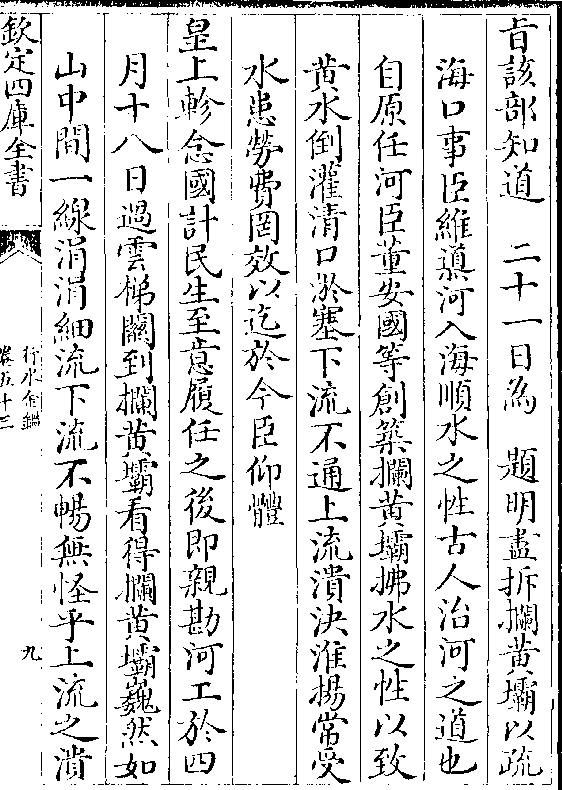 旨該部知道　二十一日為　題明盡拆攔黄壩以疏
海口事臣維導河入海順水之性古人治河之道也
自原任河臣董安國等創築攔黄壩拂水之性以致
黄水倒灌清口淤塞下流不通上流潰決淮揚常受
水患勞費罔效以迄於今臣仰體
皇上軫念國計民生至意履任之後即親勘河工於四
月十八日過雲梯關到攔黄壩看得攔黄壩巍然如
山中間一線涓涓細流下流不暢無怪乎上流之潰
欽定四庫全書
行水金鑑
卷五十二
九